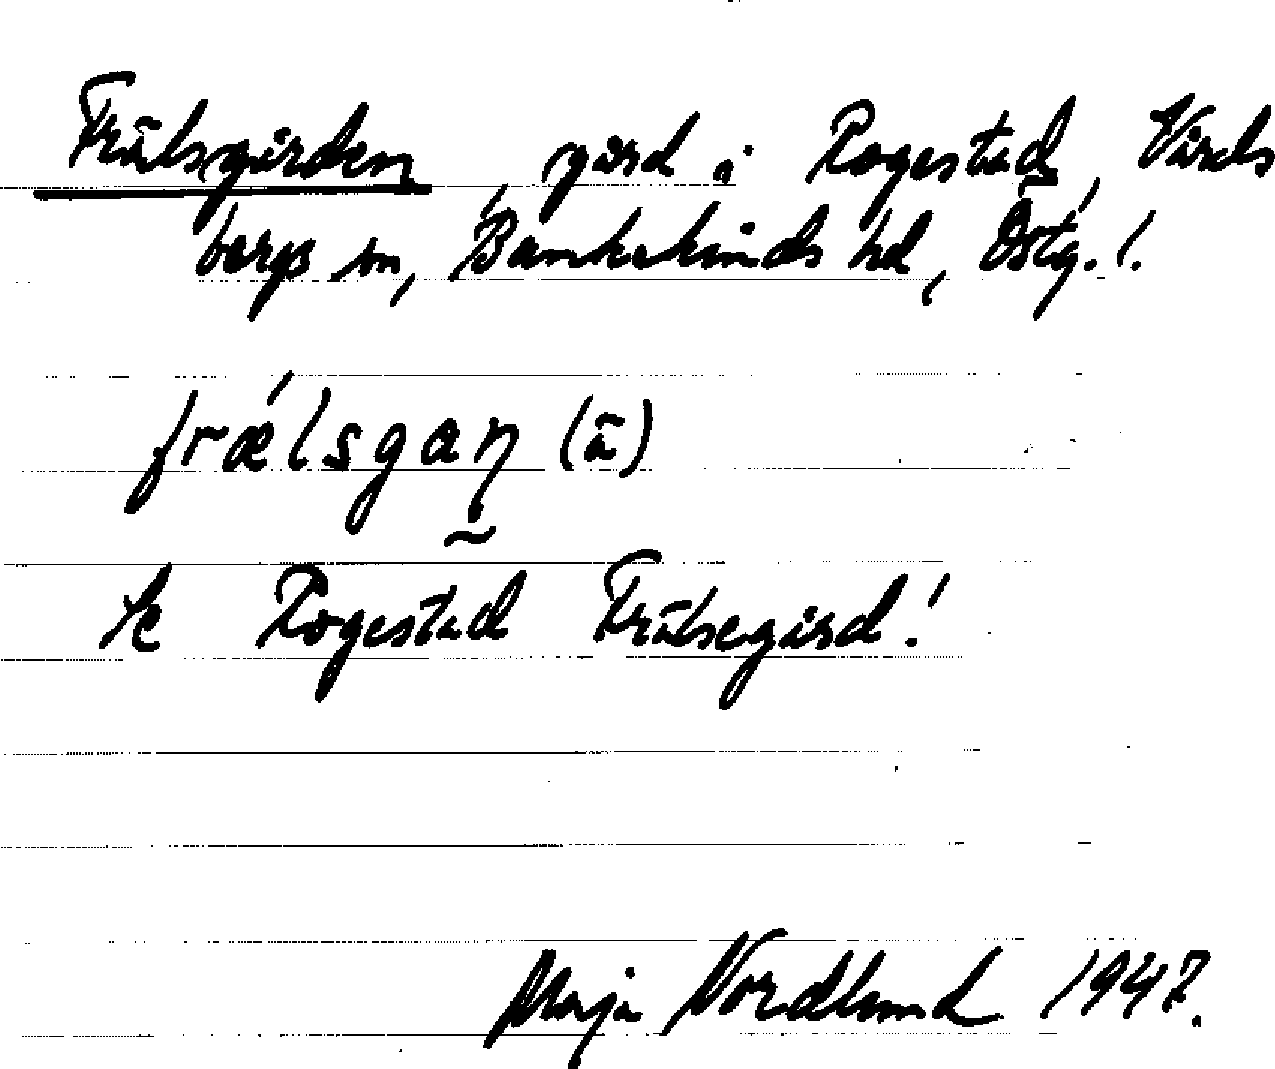 Frälsgården, gård i Rogestad, Vårds
bergs sn, Bankekinds hd, Östg. l.
frǽlsgaņ (ā)
Se Rogestad Frälsegård!
Maja Nordlund 1947.